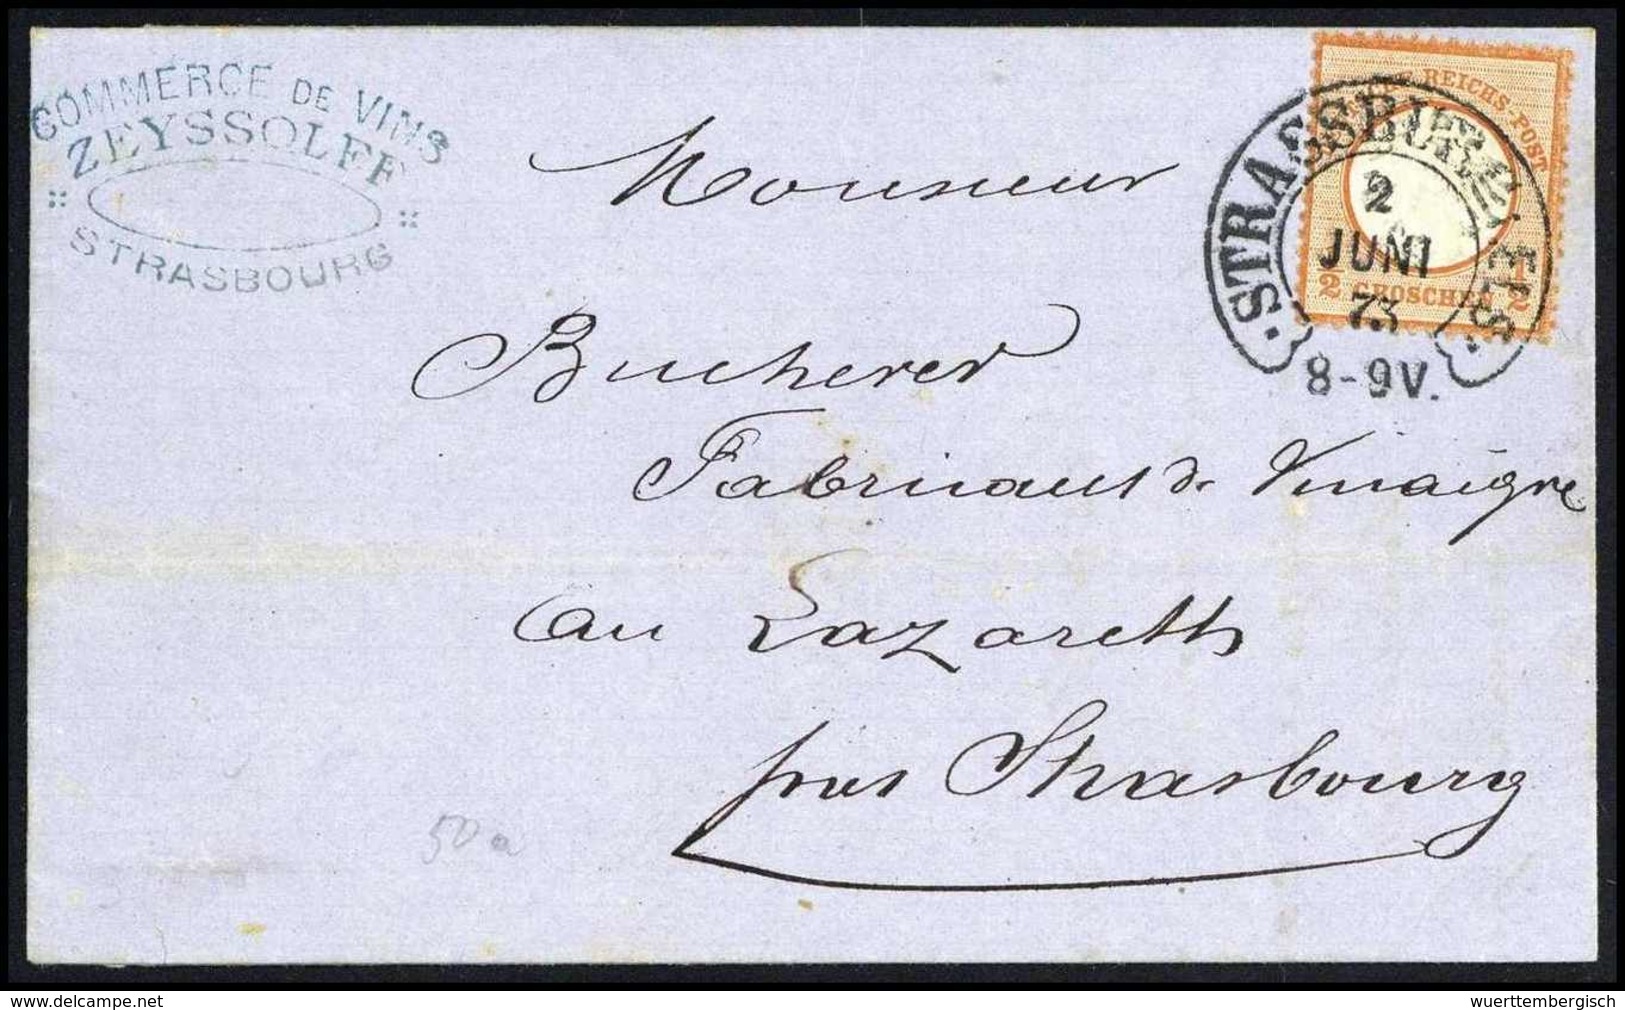 COMMERCE DE VINS
ZEYSSOLFF
STRASBOURG
REICHS-POST
½ GROSCHEN ½
STRASSBURG i. ELS.
2
JUNI
73
8-9V.
Monsieur
Bucherer
Fabricant de Vinaigre
au Lazareth
près Strasbourg
50 a
www.delcampe.net
wuerttembergisch